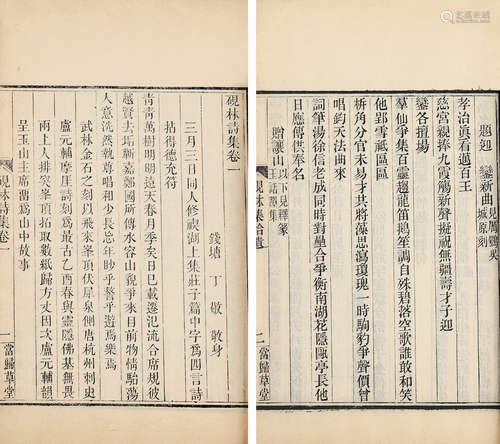 題迎鑾新曲 見厲鶚吳城原刻
孝治真看邁百王
慈宮親捧九霞觴新聲擬祝無疆壽才子迎
鑾各擅場
羣仙爭集百靈趨龍笛鵝笙調自殊碧落空歌誰敢和笑
他郢雪祗區區
柝角分官未易才共將藻思瀉瓊瑰一時駒豹爭聲價曾
唱鈞天法曲來
詞筆湯徐信老成同時對壘爭衡南湖花隱甌亭長他
日應傳供奉名
贈讓山 以下見釋篆玉話墮集
硯林集拾遺 二 當歸草堂
硯林詩集卷一
錢塘 丁敬 敬身
三月三日同人修禊湖上集莊子篇中字為四言詩
拈得德充符
青青萬樹明明遠天春月季矣日已載遊氾流合席規彼
越賢去垢新嘉鄭國所傳水容山貌爭來目前物情駘蕩
人意洸然執其尊唱和少長忘年眇乎謷乎遊焉樂焉
武林金石之刻以飛來峯頂伏犀泉側唐杭州刺史
盧元輔摩崖詩刻為最古乙酉春與靈隱佛基無畏
兩上人排突峯頂拓取數紙歸方丈因次盧元輔韻
呈玉山主席為山中故事
硯林詩集卷一 一 當歸草堂